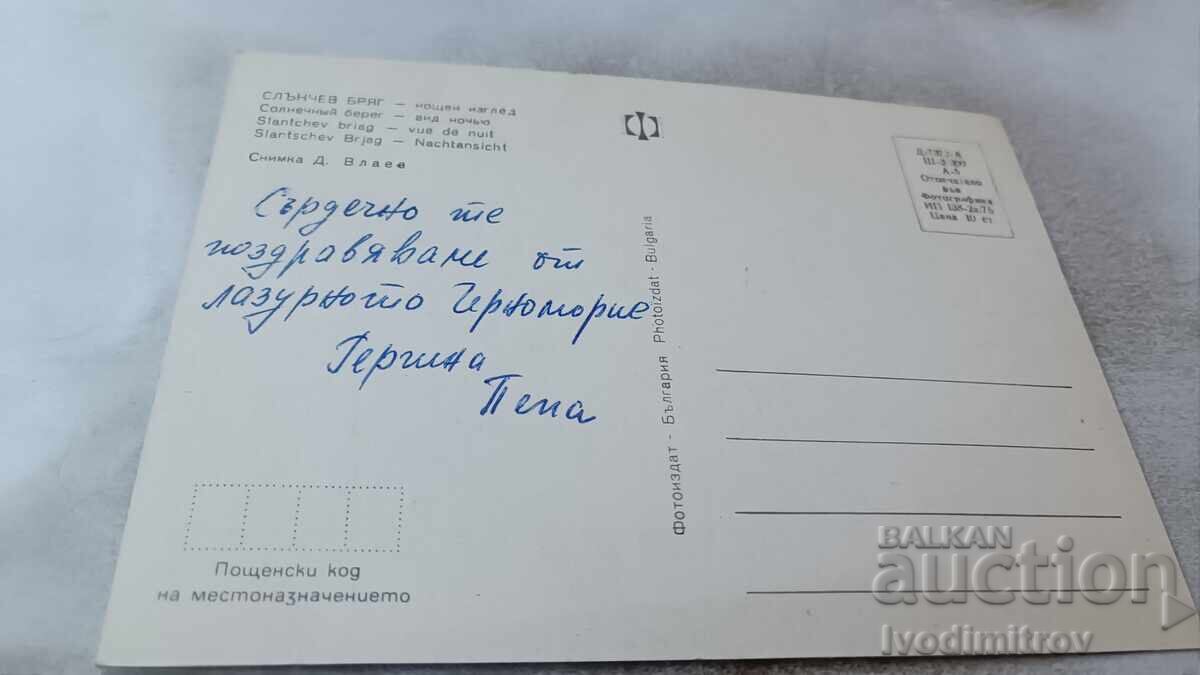 СЛЪНЧЕВ БРЯГ — нощен изглед
Солнечный берег — вид ночью
Slantchev briag — vue de nuit
Slantschev Brjag — Nachtansicht
Снимка Д. Влаев
Сърдечно те
поздравяваме от
лазурното Черноморие
Гергина
Пепа
Пощенски код
на местоназначението
Фотоиздат - България Photoizdat - Bulgaria
А-5
Отпечатано
във
Фотографика
Цена 10 ст
BALKAN
auction
Ivodimitrov